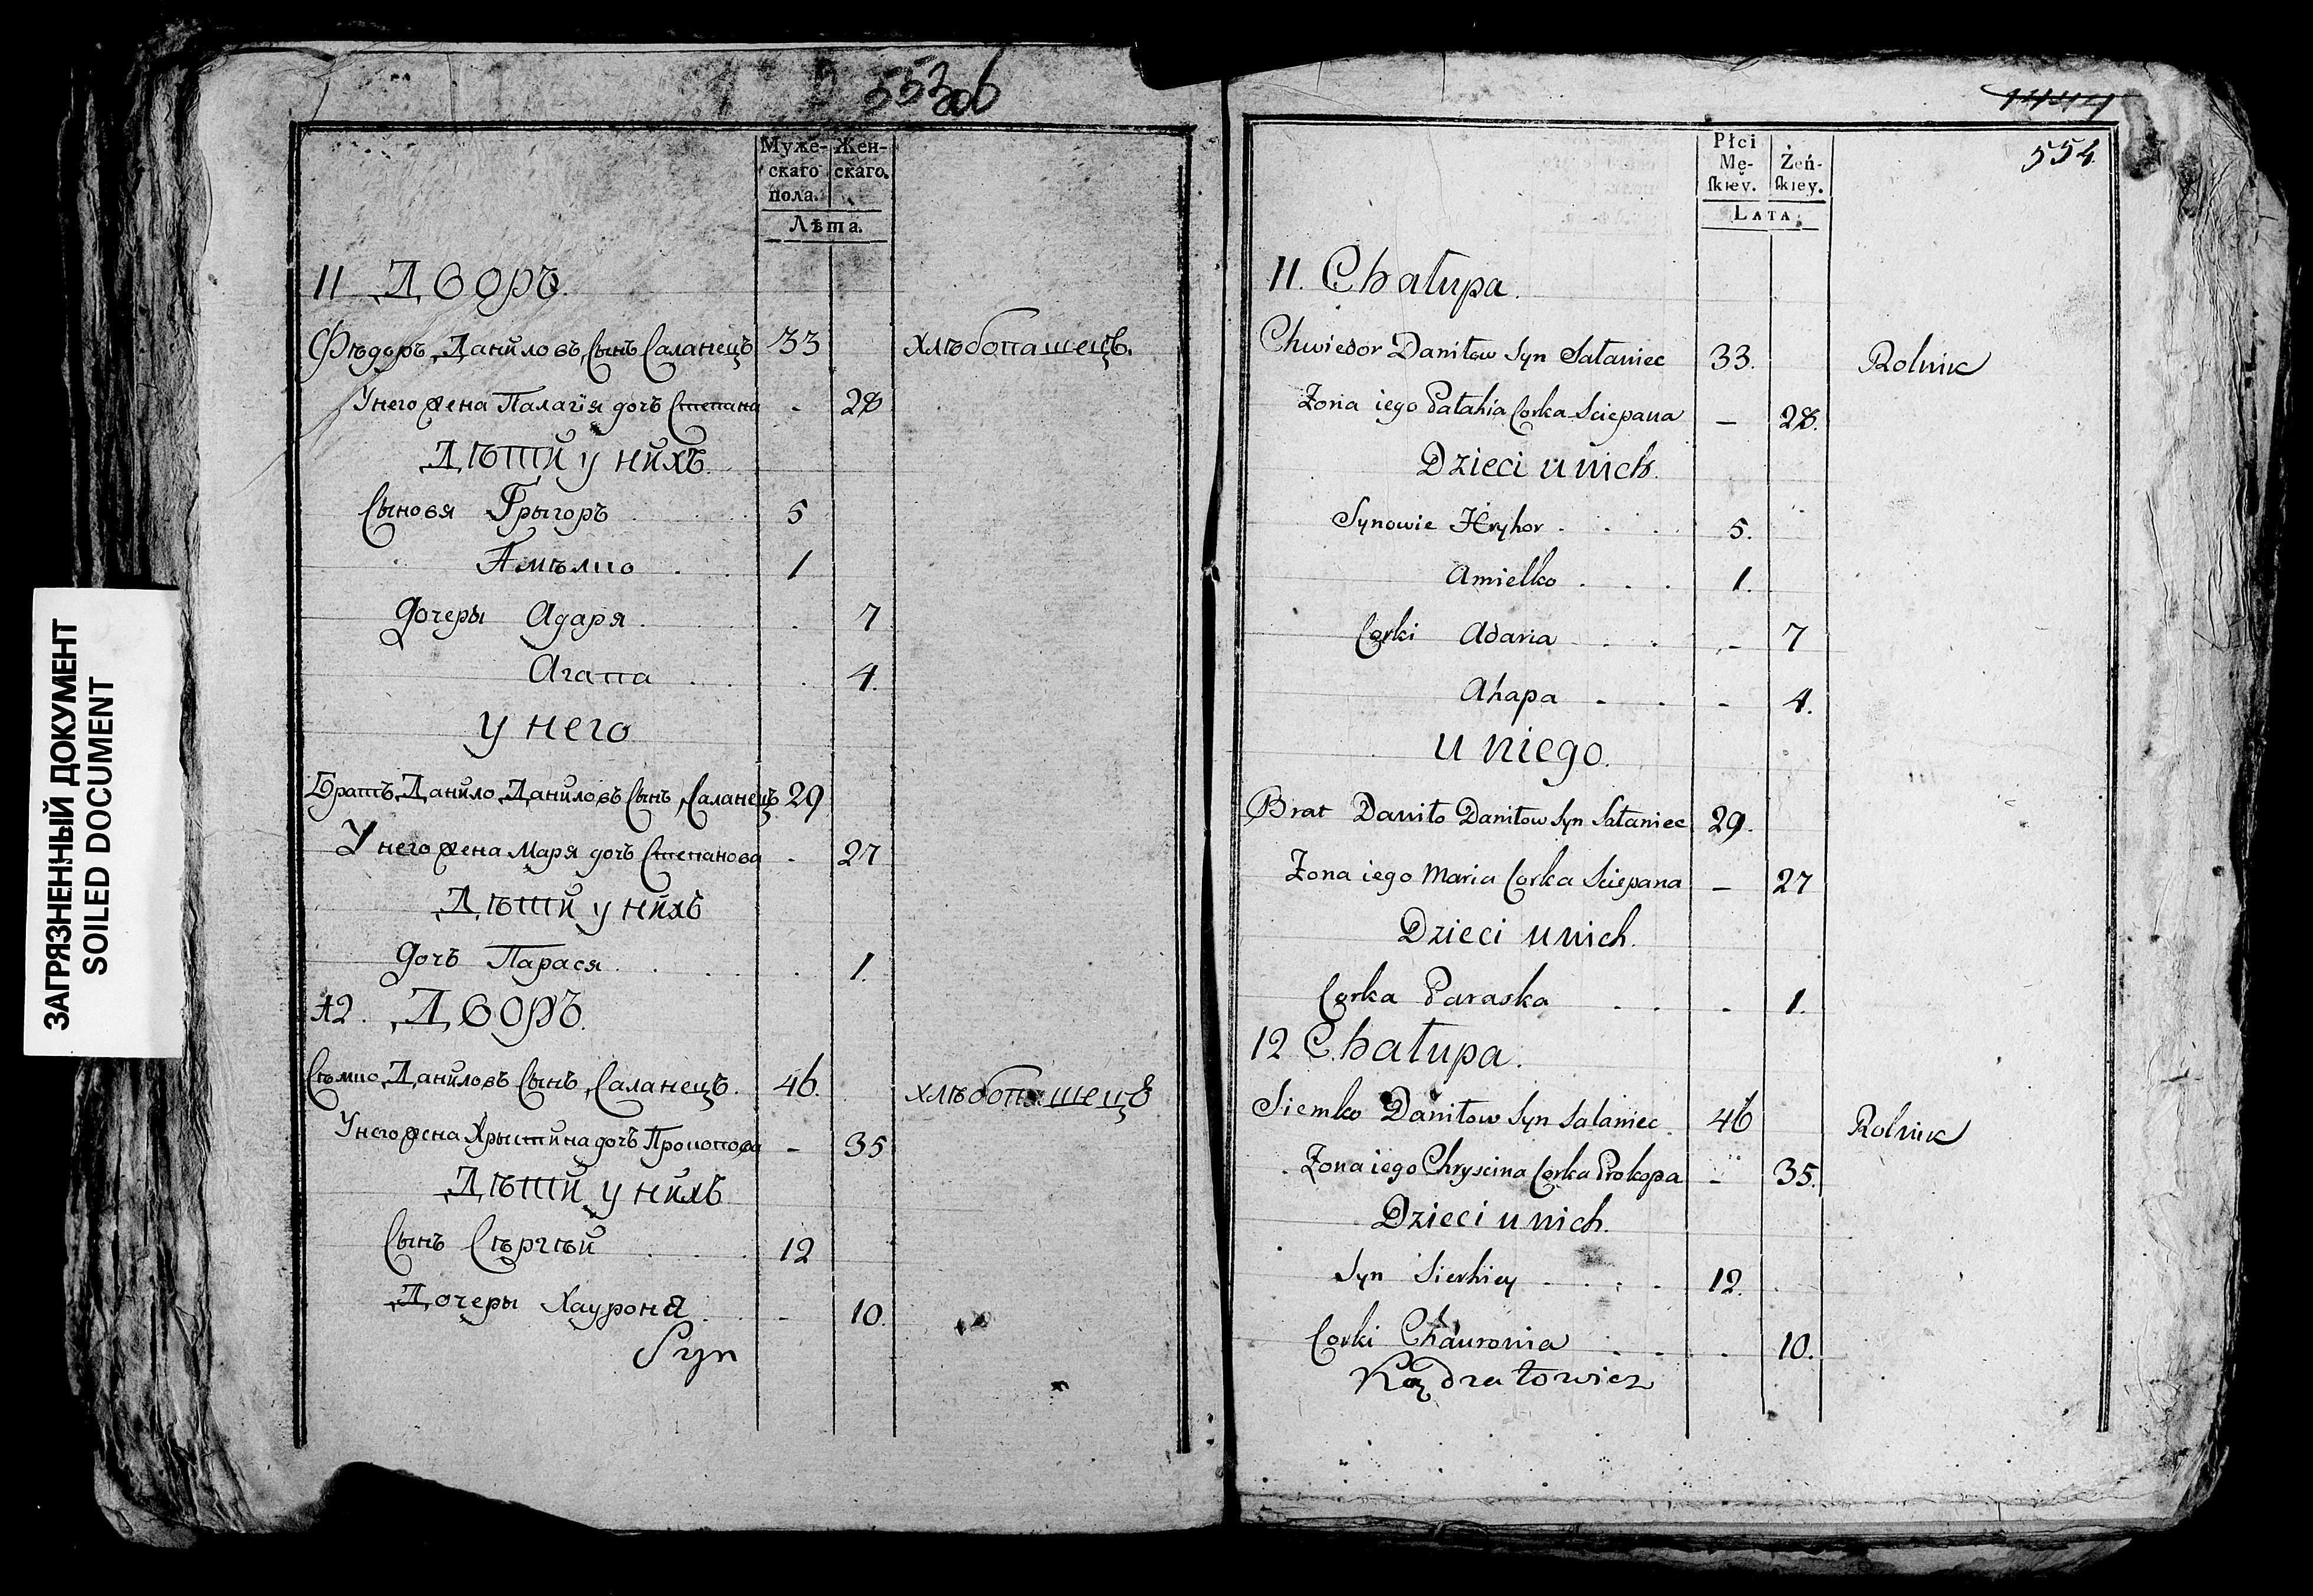 553 об
Муже-
скаго
пола.
Жен-
скаго.
Лѣта.
11 Дворъ.
Фѣдоръ Даниловъ Сынъ Саланецъ 33 хлѣбопашецъ.
У него жена Палагія дочь Степана - 28
Дѣти у нихъ.
Сыновя Грыгоръ . . . 5
Амѣлко . . 1
дочеры Адаря . . 7
Агапа . . . 4.
у него
Братъ Данило Даниловъ Сынъ Саланецъ 29
У него жена Маря дочь Степанова - 27
Дѣти у нихъ
дочь Парася . . . . 1.
12. Дворъ.
Сѣмко Даниловъ Сынъ Саланецъ. 46. хлѣбопашецъ
У него жена Хрыстина дочь Прокопова - 35
Дѣти у нихъ
Сынъ Сѣргѣй . . . 12
Дочеры Хауроня . - 10.
Syn
ЗАГРЯЗНЕННЫЙ ДОКУМЕНТ
SOILED DOCUMENT
554.
Płci
Mę-
ſkiey.
Żeń-
ſkiey.
LATA.
11. Chałupa.
Chwiedor Daniłow Syn Sałaniec 33. Rolnik
Żona iego Pałahia Corka Sciepana — 28.
Dzieci u nich.
Synowie Hryhor . . . 5.
Amielko . . . 1.
Corki Adaria . . - 7
Ahapa . . - 4.
u niego.
Brat Daniło Daniłow Syn Sałaniec 29.
Żona iego Maria Corka Sciepana — 27
Dzieci u nich.
Corka Paraska . . . 1.
12 Chałupa.
Siemko Daniłow Syn Sałaniec. 46 Rolnik
Żona iego Chryscina Corka Prokopa - 35.
Dzieci u nich.
Syn Sierhiey . . . . 12.
Corki Chauronia . . . 10.
Kądratowicz